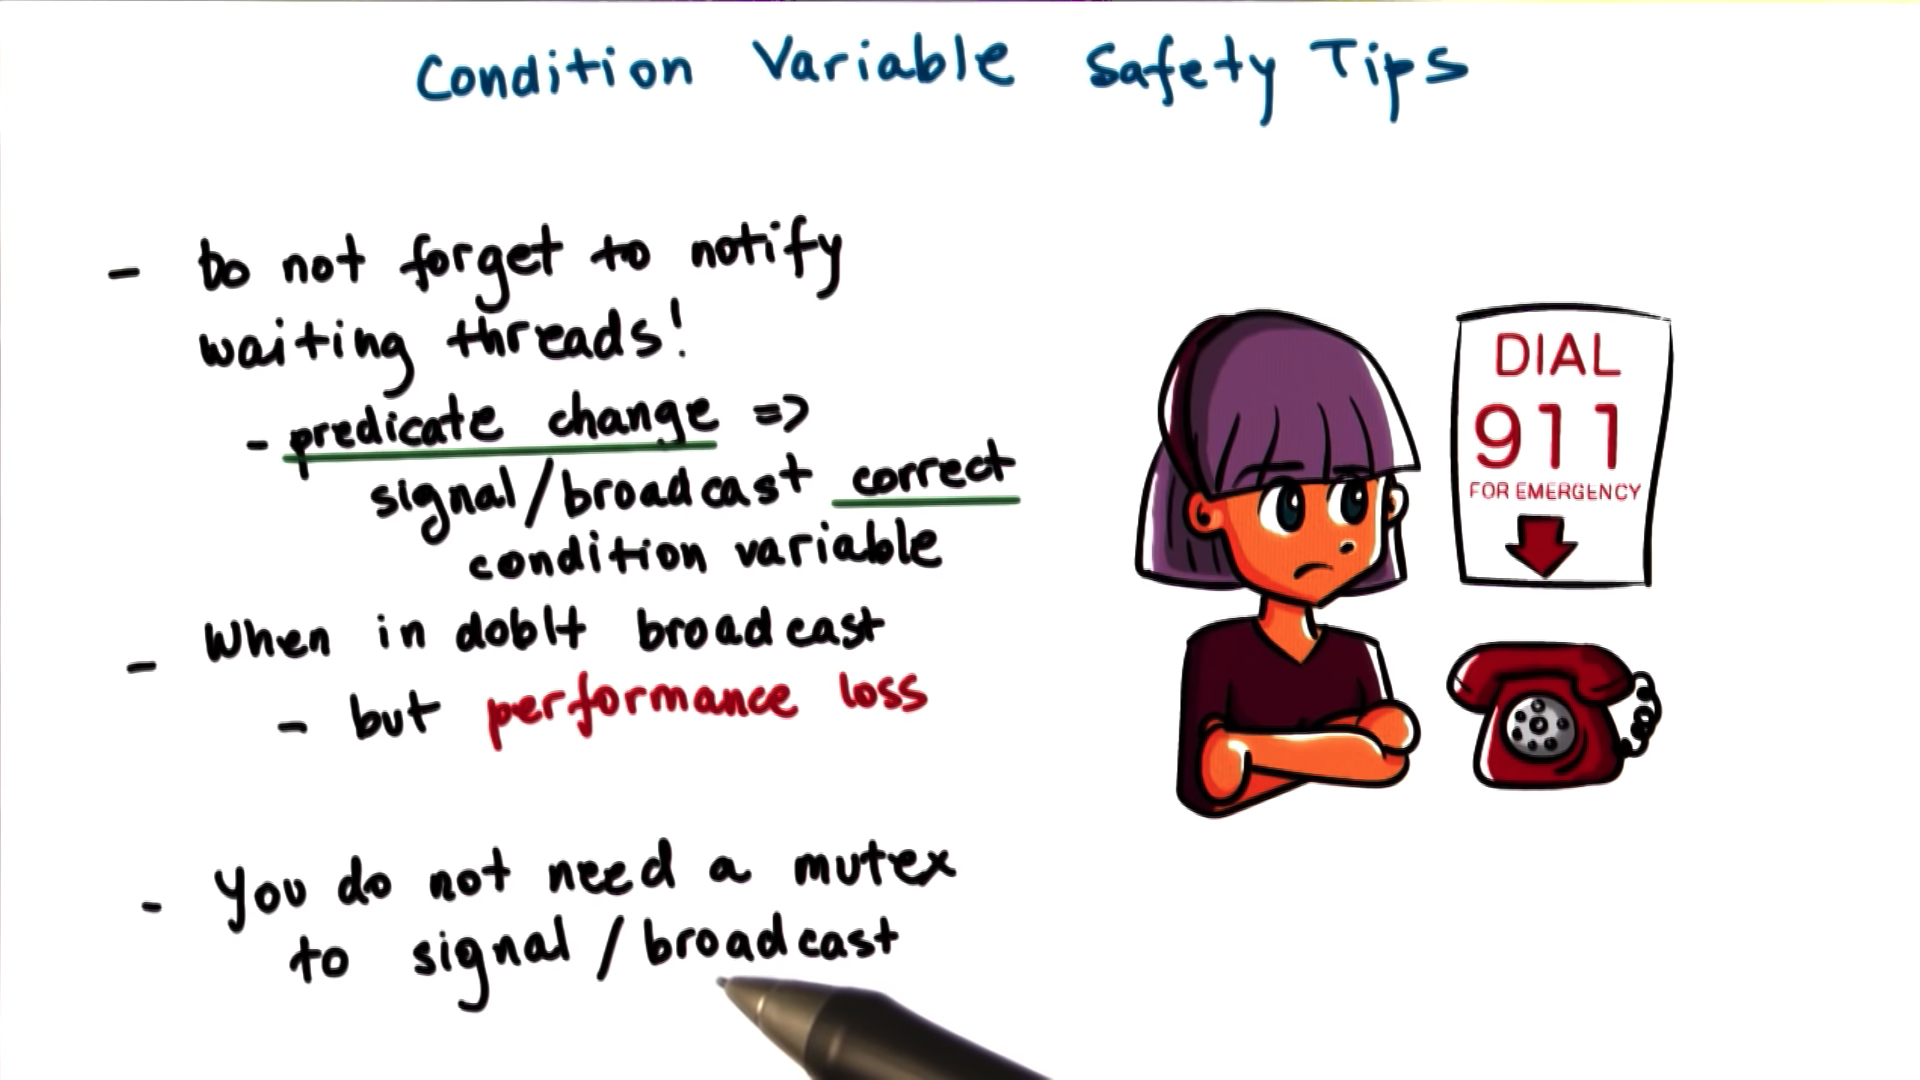 Condition Variable Safety Tips
- Do not forget to notify
waiting threads!
- predicate change =>
signal/broadcast correct
condition variable
- When in dobIt broadcast
- but performance loss
- You do not need a mutex
to signal / broadcast
DIAL
911
FOR EMERGENCY